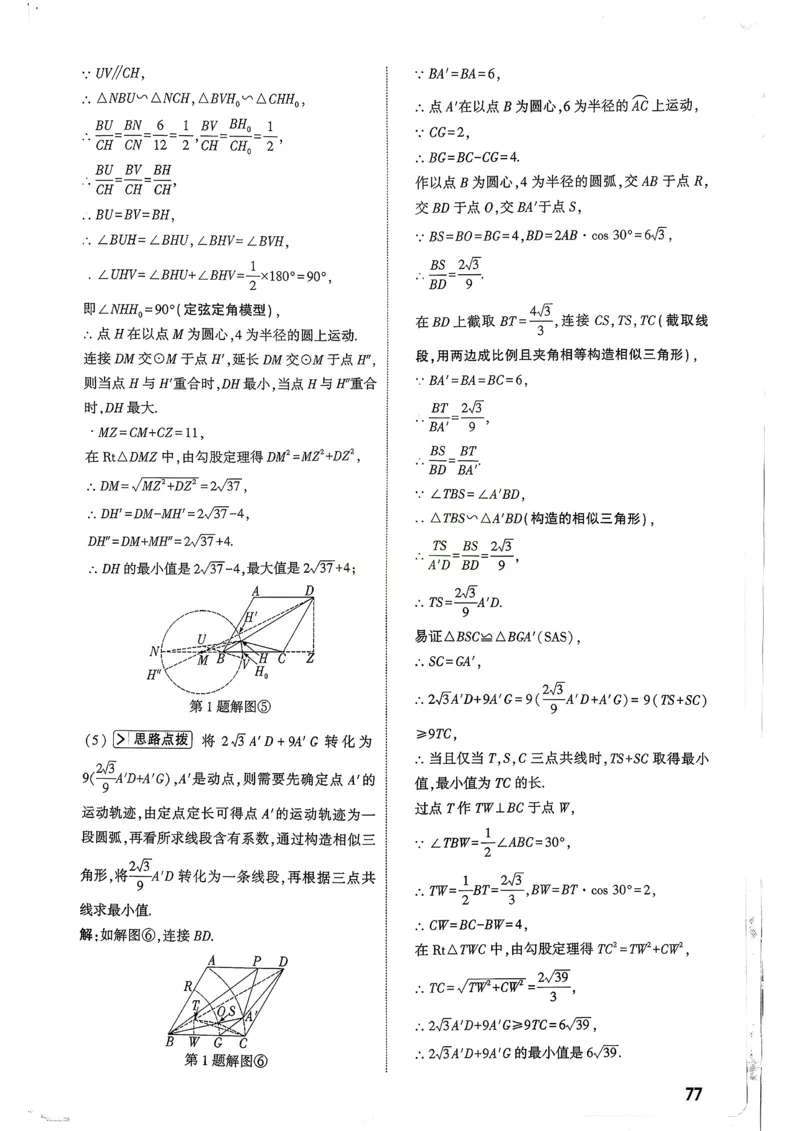 ∵ UV∥CH,
∴ △NBU∽△NCH,△BVH₀∽△CHH₀,
∴ BU/CH=BN/CN=6/12=1/2,BV/CH=BH₀/CH₀=1/2,
∴ BU/CH=BV/CH=BH/CH,
∴ BU=BV=BH,
∴ ∠BUH=∠BHU,∠BHV=∠BVH,
. ∠UHV=∠BHU+∠BHV=1/2×180°=90°,
即∠NHH₀=90°(定弦定角模型),
∴ 点 H 在以点 M 为圆心,4 为半径的圆上运动.
连接 DM 交⊙M 于点 H′,延长 DM 交⊙M 于点 H″,
则当点 H 与 H′重合时,DH 最小,当点 H 与 H″重合
时,DH 最大.
· MZ=CM+CZ=11,
在 Rt△DMZ 中,由勾股定理得 DM²=MZ²+DZ²,
∴ DM=√(MZ²+DZ²)=2√37,
∴ DH′=DM-MH′=2√37-4,
DH″=DM+MH″=2√37+4.
∴ DH 的最小值是 2√37-4,最大值是 2√37+4;
A D
H′
U
N M B V H C Z
H″ H₀
第 1 题解图⑤
(5) 思路点拨 将 2√3 A′D+9A′G 转化为
9(2√3/9 A′D+A′G),A′是动点,则需要先确定点 A′的
运动轨迹,由定点定长可得点 A′的运动轨迹为一
段圆弧,再看所求线段含有系数,通过构造相似三
角形,将2√3/9 A′D 转化为一条线段,再根据三点共
线求最小值.
解:如解图⑥,连接 BD.
A P D
R
T O S A′
B W G C
第 1 题解图⑥
∵ BA′=BA=6,
∴ 点 A′在以点 B 为圆心,6 为半径的 AC⌒ 上运动,
∵ CG=2,
∴ BG=BC-CG=4.
作以点 B 为圆心,4 为半径的圆弧,交 AB 于点 R,
交 BD 于点 O,交 BA′于点 S,
∵ BS=BO=BG=4,BD=2AB·cos 30°=6√3,
∴ BS/BD=2√3/9.
在 BD 上截取 BT=4√3/3,连接 CS,TS,TC(截取线
段,用两边成比例且夹角相等构造相似三角形),
∵ BA′=BA=BC=6,
∴ BT/BA′=2√3/9,
∴ BS/BD=BT/BA′.
∵ ∠TBS=∠A′BD,
∴ △TBS∽△A′BD(构造的相似三角形),
∴ TS/A′D=BS/BD=2√3/9,
∴ TS=2√3/9 A′D.
易证△BSC≌△BGA′(SAS),
∴ SC=GA′,
∴ 2√3A′D+9A′G=9(2√3/9 A′D+A′G)=9(TS+SC)
≥9TC,
∴ 当且仅当 T,S,C 三点共线时,TS+SC 取得最小
值,最小值为 TC 的长.
过点 T 作 TW⊥BC 于点 W,
∵ ∠TBW=1/2∠ABC=30°,
∴ TW=1/2BT=2√3/3,BW=BT·cos 30°=2,
∴ CW=BC-BW=4,
在 Rt△TWC 中,由勾股定理得 TC²=TW²+CW²,
∴ TC=√(TW²+CW²)=2√39/3,
∴ 2√3A′D+9A′G≥9TC=6√39,
∴ 2√3A′D+9A′G 的最小值是 6√39.
77